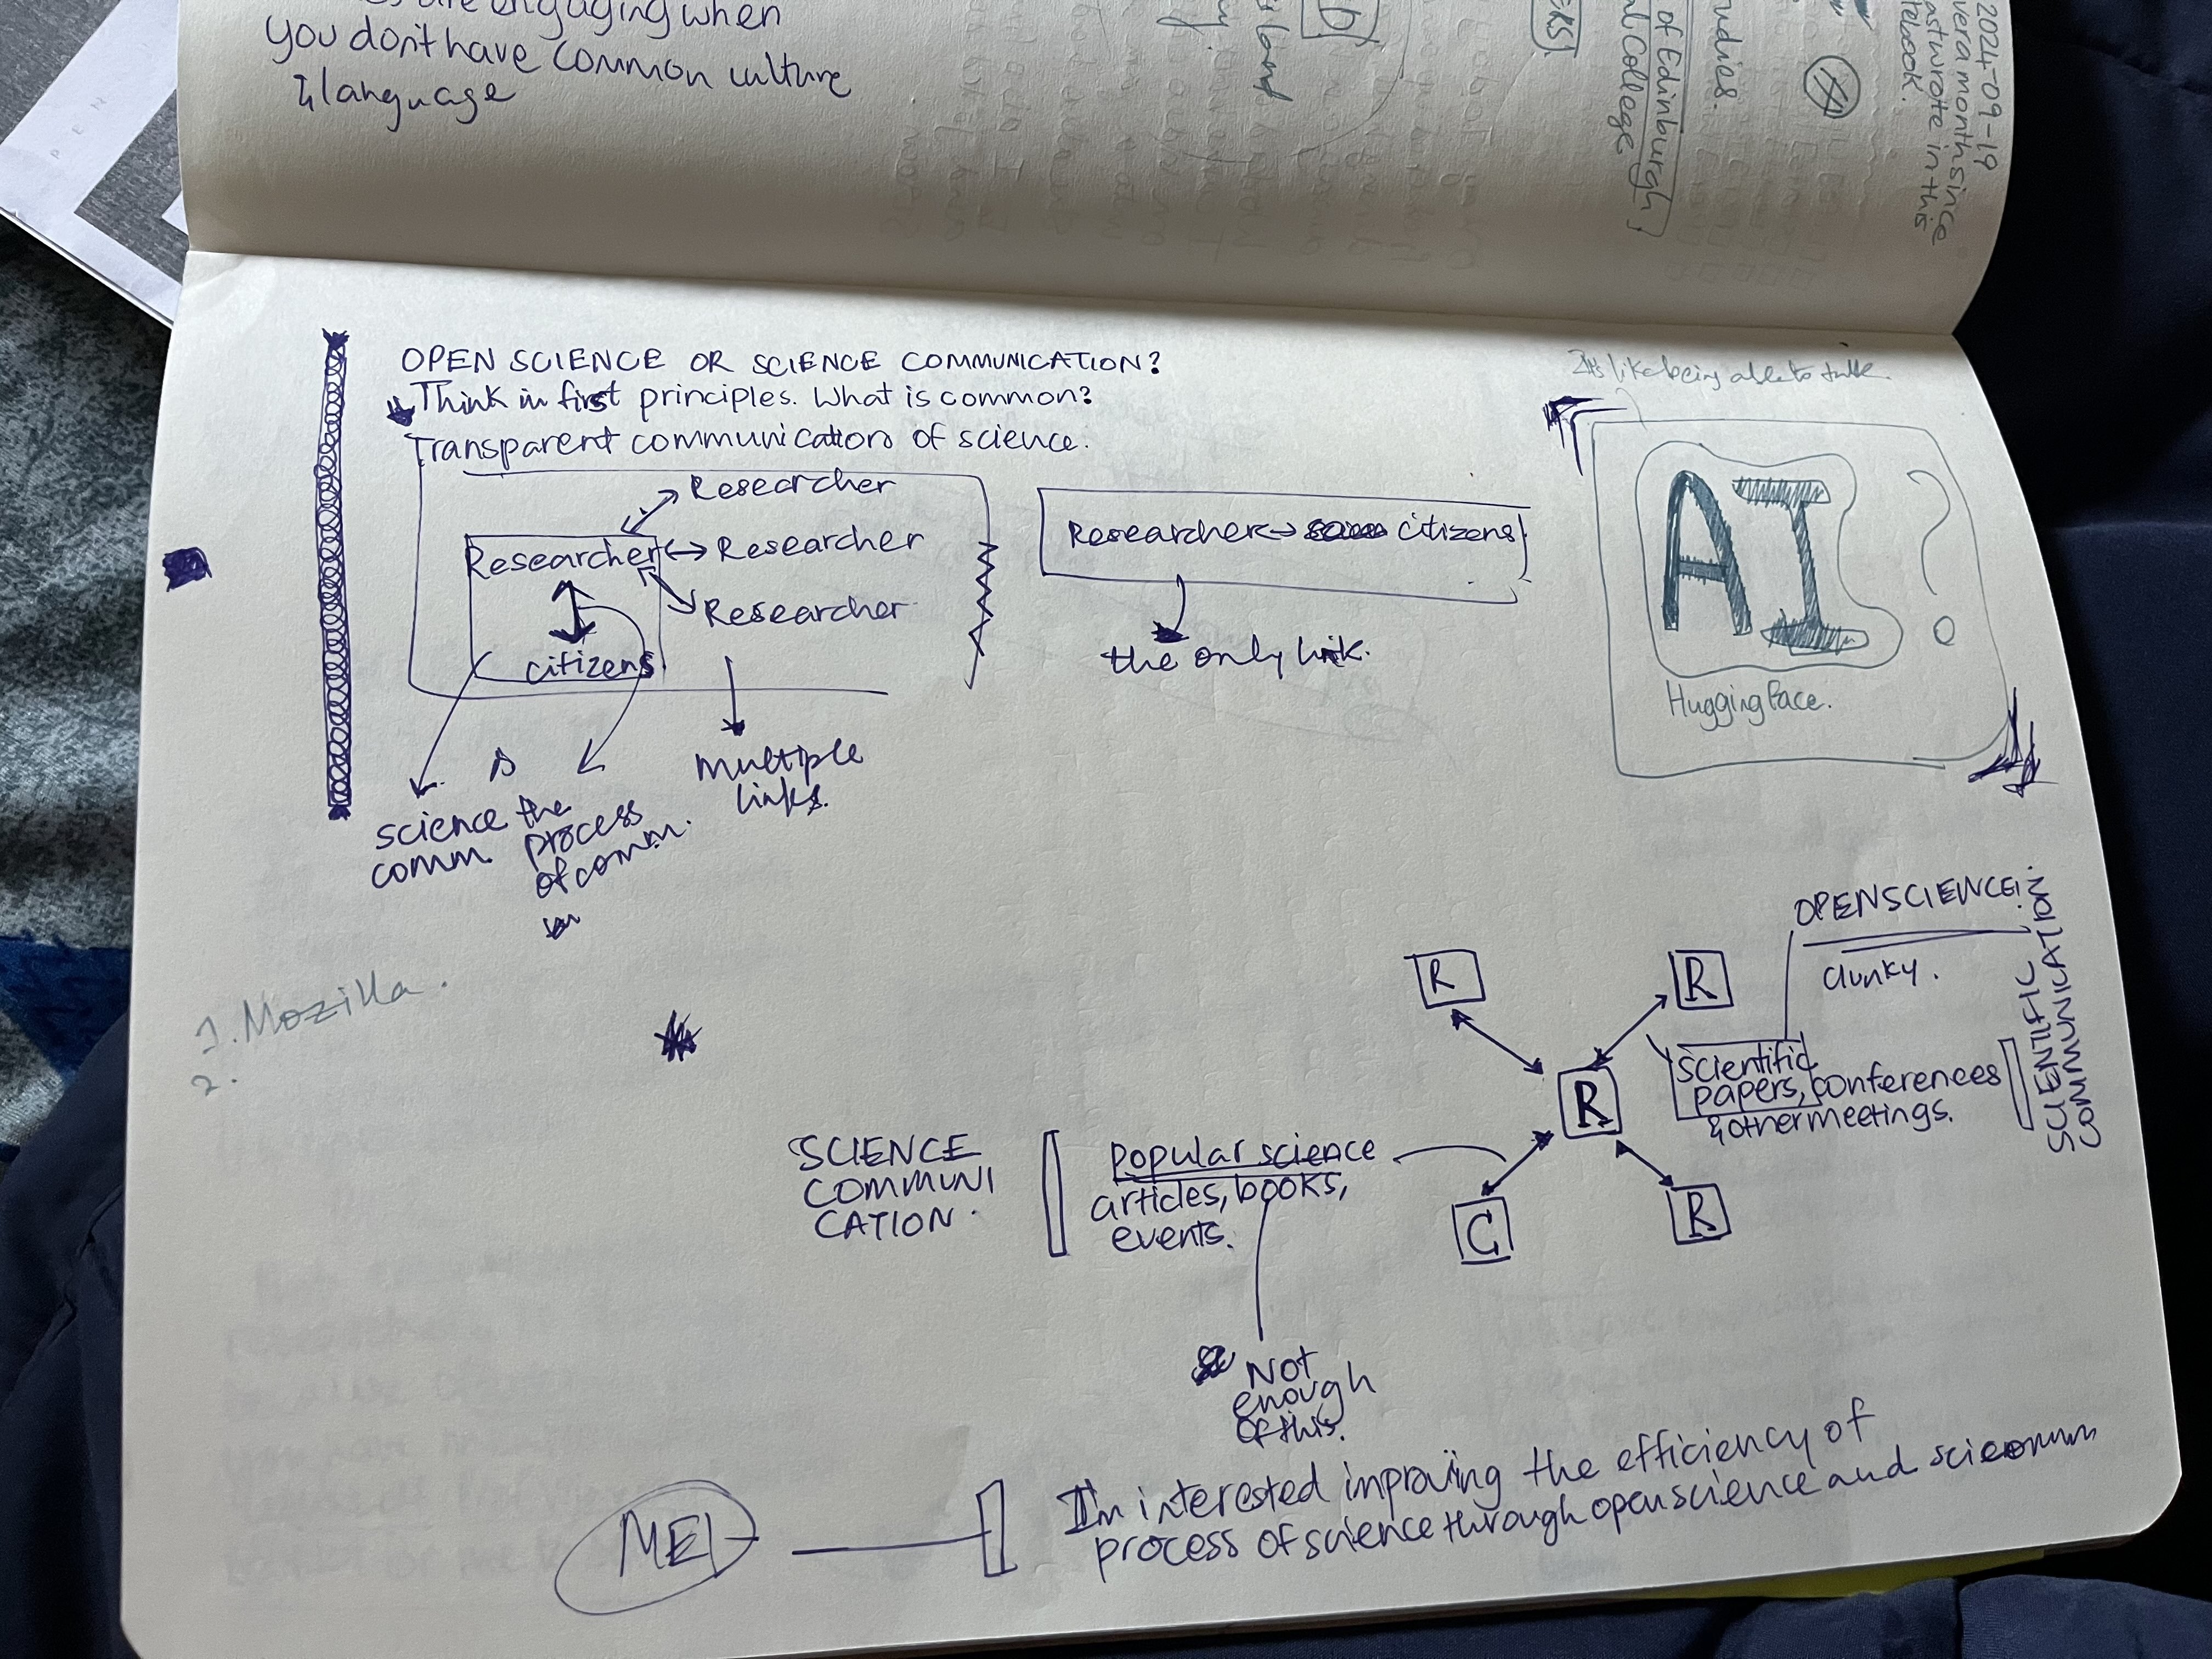 are engaging when
you don't have common culture
& language
2024-09-19
over a month since
last wrote in this
notebook.
udies.
of Edinburgh,
al College
ERS!
D
island
OPEN SCIENCE OR SCIENCE COMMUNICATION?
Think in first principles. What is common?
Transparent communication of science.
Researcher
Researcher ↔ Researcher
Researcher
citizens
science
comm.
the
process
of comm.
multiple
links.
Researcher ↔ citizens
the only link.
It's like being able to talk.
AI ?
Hugging Face.
1. Mozilla.
2.
OPEN SCIENCE!
clunky.
SCIENTIFIC
COMMUNICATION.
R
R
R
C
R
scientific
papers, conferences
& other meetings.
SCIENCE
COMMUNI
CATION.
popular science
articles, books,
events.
Not
enough
of this.
ME
I'm interested improving the efficiency of
process of science through open science and scicomm